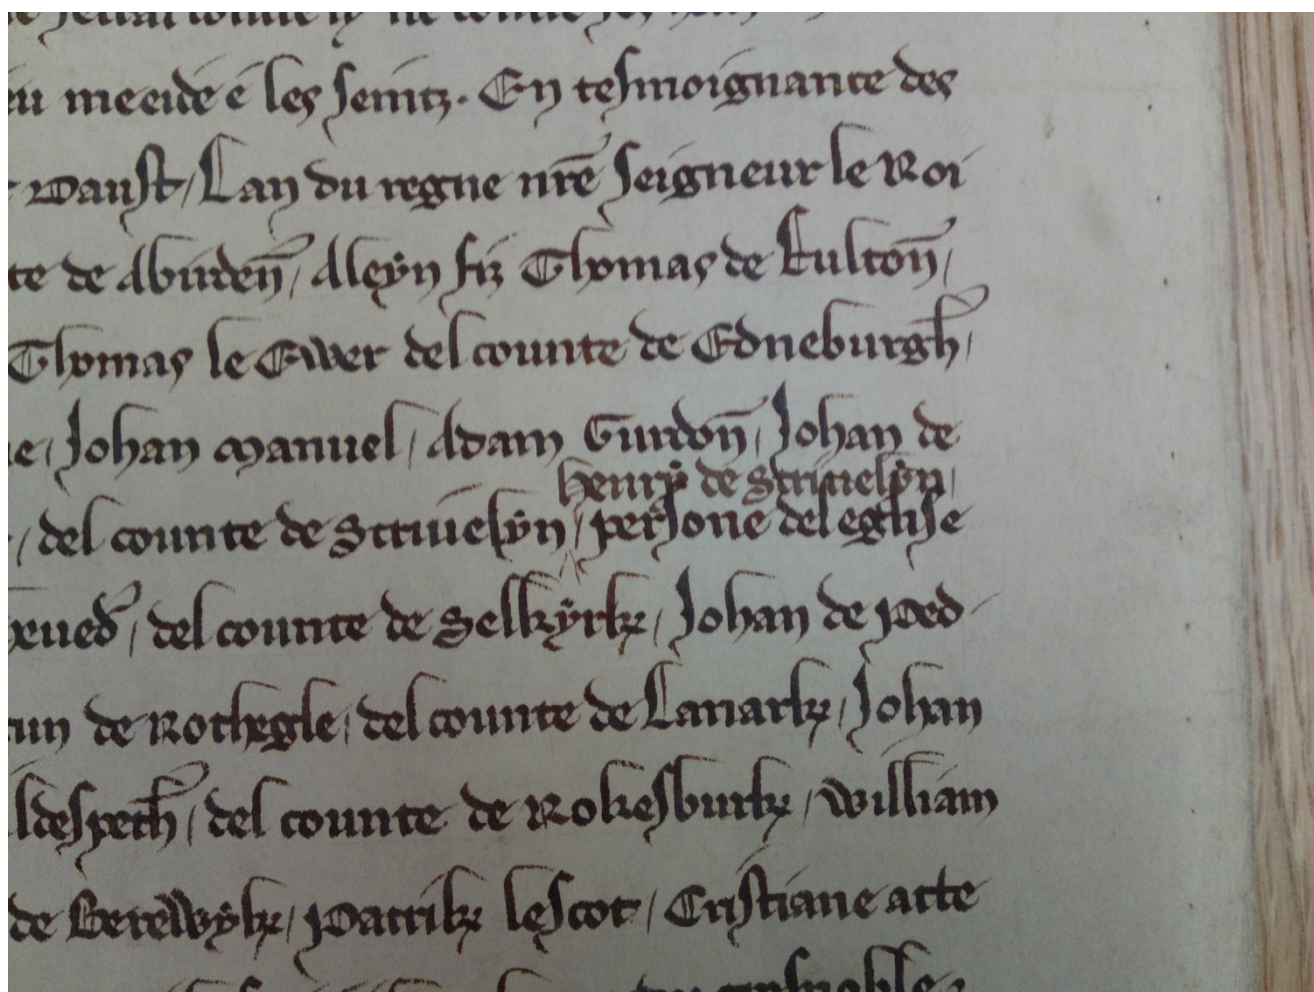 eu meeide e les seintz. En tesmoignance des
Daust, Lan du regne nr̄e seigneur le Roi
te de Abirden̄, Aleyn fiz Thomas de Fulton̄,
Thomas le Ewer del counte de Edneburgh̄,
e, Johan Manuel, Adam Gurdon̄, Johan de
Henry de Striuelyn,
, del counte de Striuelyn, persone del eglise
heued, del counte de Selkyrk, Johan de Ped
de Rothegle, del counte de Lanark, Johan
ldespeth̄, del counte de Rokesburk, William
de Berewyk, Patrik le Scot, Cristiane atte